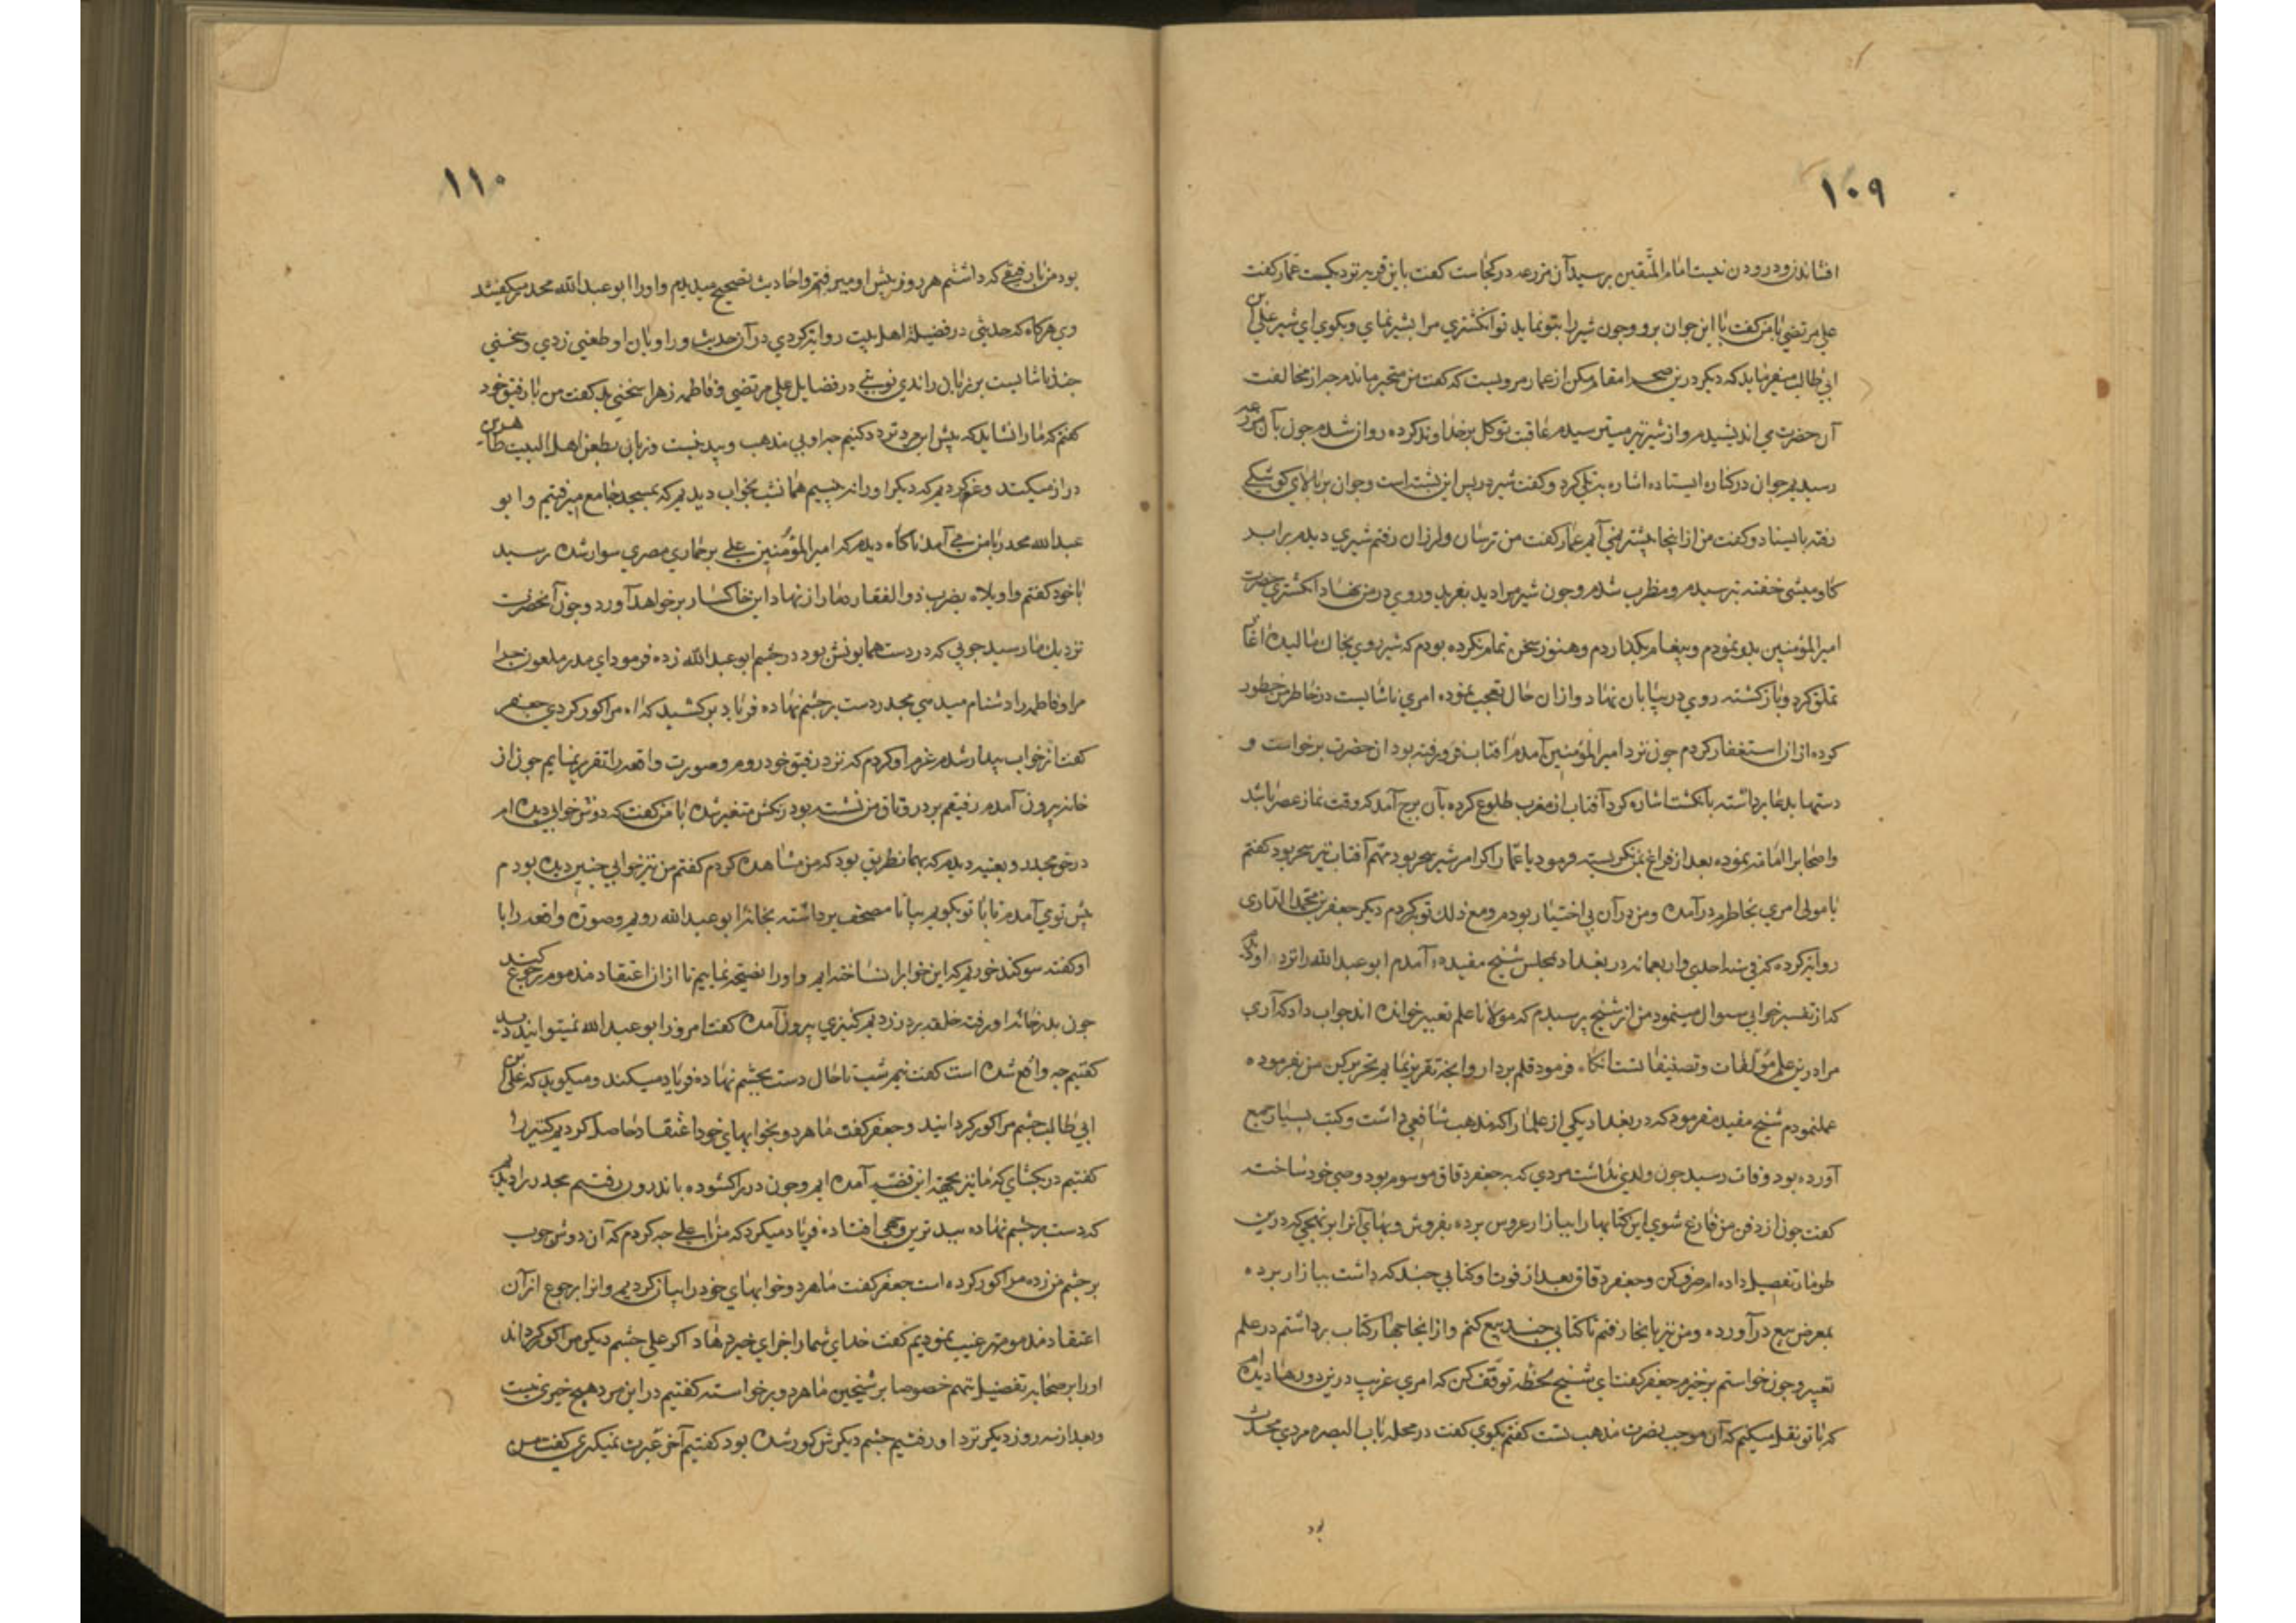 ١٠٩
افشاندن و درودن نیست امام المتقین پرسید آن مزرعه در کجاست کفت باین قریه نزدیکست عمار کفت
علی مرتضی با من کفت با این جوان برو وجون شیر را بتو نماید تو انکشتری مرا بشیر نمای و بکوی ای شیر علی بن
ابی طالب میفرماید که دیکر درین صحرا مقام مکن از عمار مرویست که کفت من متحیر ماندم جه از مخالفت
آن حضرت می اندیشیدم و از شیر نیز میترسیدم عاقبت توکل بر خداوند کرده روان شدم جون بآن مزرعه
رسیدیم جوان در کناره ایستاده اشاره بتلی کرد و کفت شیر در پس این پشته است وجوان بر بالای کوشکی
رفته بایستاد و کفت من از اینجا پیشتر نمی آیم عمار کفت من ترسان و لرزان رفتم شیری دیدم برابر
کاومیشی خفته بترسیدم و مظرب شدم وجون شیر مرا دید بغرید و روی در من نهاد انکشتری حضرت
امیر المؤمنین بدو نمودم و پیغام بکذاردم وهنوز سخن تمام نکرده بودم که شیر روی بخاک مالیده اغاز
تملق کرد و باز کشته روی در بیابان نهاد و ازان حال تعجب نموده امری ناشایست در خاطر من خطور
کرده ازان استغفار کردم جون نزد امیر المؤمنین آمدم آفتاب فرو رفته بود ان حضرت برخواست و
دستها بدعا برداشته بانکشت اشاره کرد آفتاب از مغرب طلوع کرده بآن برج آمد که وقت نماز عصر باشد
واصحابرا امامت نموده بعد از فراغ بمن نکریسته فرمود یا عمار اکر امر شیر سحر بود مهم آفتاب نیز سحر بود کفتم
یا مولی امری بخاطرم درآمده ومن درآن بی اختیار بودم ومع ذلک توبه کردم دیکر جعفر بن محمد الداری
روایة کرده که فی سنه احدی واربعمائه در بغداد بمجلس شیخ مفید آمدم ابو عبد الله را نزد او
که از تفسیر خوابی سوال مینمود من از شیخ پرسیدم که مولانا علم تعبیر خوانده اند جواب داد که آری
مرا درین علم مؤلفات و تصنیفاتست انکاه فرمود قلم بردار وانجه تقریر نمایم تحریر کن من بفرموده
عملنمودم شیخ مفید میفرمود که در بغداد یکی از علما را که مذهب شافعی داشت وکتب بسیار جمع
آورده بود وفات رسید جون ولدی نداشت مردی که بجعفر دقاق موسوم بود وصی خود ساخته
کفت جون از دفن من فارغ شوی این کتابها را ببازار عروس برده بفروش وبهای آنرا بر نهجی که درین
طومار تفصیل داده ام صرف کن وجعفر دقاق بعد از فوت او کتابی جند که داشت ببازار برده
بمعرض بیع درآورده ومن نیز بانجا رفتم تا کتابی جند بیع کنم وازانجا جهار کتاب برداشتم در علم
تعبیر وجون خواستم برخیزم جعفر کفت ای شیخ لحظه توقف کن که امری غریب درین دورها دیده ام
که با تو نقل میکنم که آن موجب نصرت مذهب تست کفتم بکوی کفت در محله باب البصره مردی محدث
بود
١١٠
بود من با رفیقی که داشتم هر روز پیش او میرفتم واحادیث تصحیح میدیدم واورا ابو عبد الله محدر میکفتند
وی هرکاه که حدیثی در فضیلة اهل بیت روایة کردی درآن حدیث و راویان او طعنی زدی وسخنی
جند ناشایست بر زبان راندی نوبتی در فضایل علی مرتضی وفاطمه زهرا سخنی بد کفت من با رفیق خود
کفتم که مارا نشاید که پیش این مرد تردد کنیم جه او بی مذهب وبیدینست وزبانی بطعن اهل البیت طاهرین
دراز میکند وعزم کردیم که دیکر اورا نه بینیم همانشب بخواب دیدیم که بمسجد جامع میرفتیم و ابو
عبدالله محدر با من می آمد ناکاه دیدم که امیر المؤمنین علی بر حماری مصری سوار شده رسید
با خود کفتم واویلاه بضرب ذوالفقار دمار از نهاد این خاکسار برخواهد آورد وجون آنحضرت
نزدیک ما رسید جوبی که در دست همایونش بود در جشم ابو عبدالله زده فرمود ای مدبر ملعون جرا
مرا وفاطمه را دشنام میدهی محدر دست بر جشم نهاده فریاد برکشید که اه مرا کور کردی جعفر
کفت از خواب بیدار شدم عزم او کردم که نزد رفیق خود روم وصورت واقعه را تقریر نمایم جون از
خانه بیرون آمدم رفیقم بر در وثاق من نشسته بود رنکش متغیر شده با من کفت که دوش خوابی دیده ام
در حق محدر وبعینه دیدم که بهمانطریق بود که من مشاهده کردم کفتم من نیز خوابی جنین دیده بودم
پیش تو می آمدم تا با تو بکویم بیا تا مصحف برداشته بخانه ابو عبدالله رویم وصورت واقعه را با
او کفته سوکند خوریم که این خوابرا نساخته ایم واورا نصیحة نماییم تا ازان اعتقاد مذموم رجوع کند
جون بدر خانه او رفته حلقه بر در زدیم کنیزی بیرون آمده کفت امروز ابو عبد الله نمیتوانید دید
کفتیم جه واقع شده است کفت نیم شب تا حال دست بجشم نهاده فریاد میکند ومیکوید که علی بن
ابی طالب جشم مرا کور کردانید وجعفر کفت ما هردو بخوابهای خود اعتقاد حاصل کردیم کنیز را
کفتیم در بکشای که ما نیز بجهة این قضیه آمده ایم وجون در را کشوده باندرون رفتیم محدر را دیدیم
که دست بر جشم نهاده ببدترین وجهی افتاده فریاد میکرد که من با علی جه کردم که آن دوش جوب
بر جشم من زده مرا کور کرده است جعفر کفت ما هردو خوابهای خود را بیان کردیم واورا برجوع ازآن
اعتقاد مذموم ترغیب نمودیم کفت خدای شمارا جزای خیر دهاد اکر علی جشم دیکر من را کور کرداند
اورا بر صحابه تفضیل ننهم خصوصا بر شیخین ما هردو برخواسته کفتیم در این مرد هیچ خیری نیست
وبعد از سه روز دیکر نزد او رفتیم جشم دیکرش کور شده بود کفتیم آخر عبرت نمیکیری کفت من